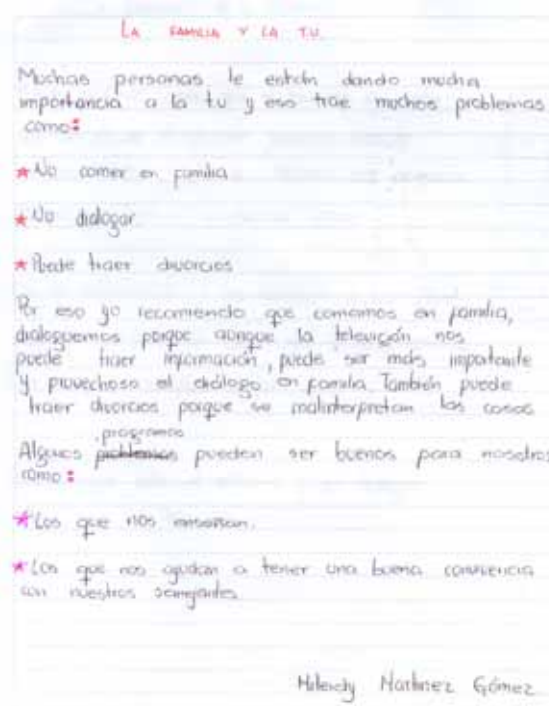 LA FAMILIA Y LA T.V.
Muchas personas le están dando mucha
importancia a la tv y eso trae muchos problemas
como:
* No comer en familia
* No dialogar
* Puede traer divorcios
Por eso yo recomiendo que comamos en familia,
dialoguemos porque aunque la televisión nos
puede traer información, puede ser más importante
y provechoso el diálogo en familia. También puede
traer divorcios porque se malinterpretan las cosas
programas
Algunos problemas pueden ser buenos para nosotros
como:
* Los que nos enseñan.
* Los que nos ayudan a tener una buena convivencia
con nuestros semejantes
Martinez Gómez